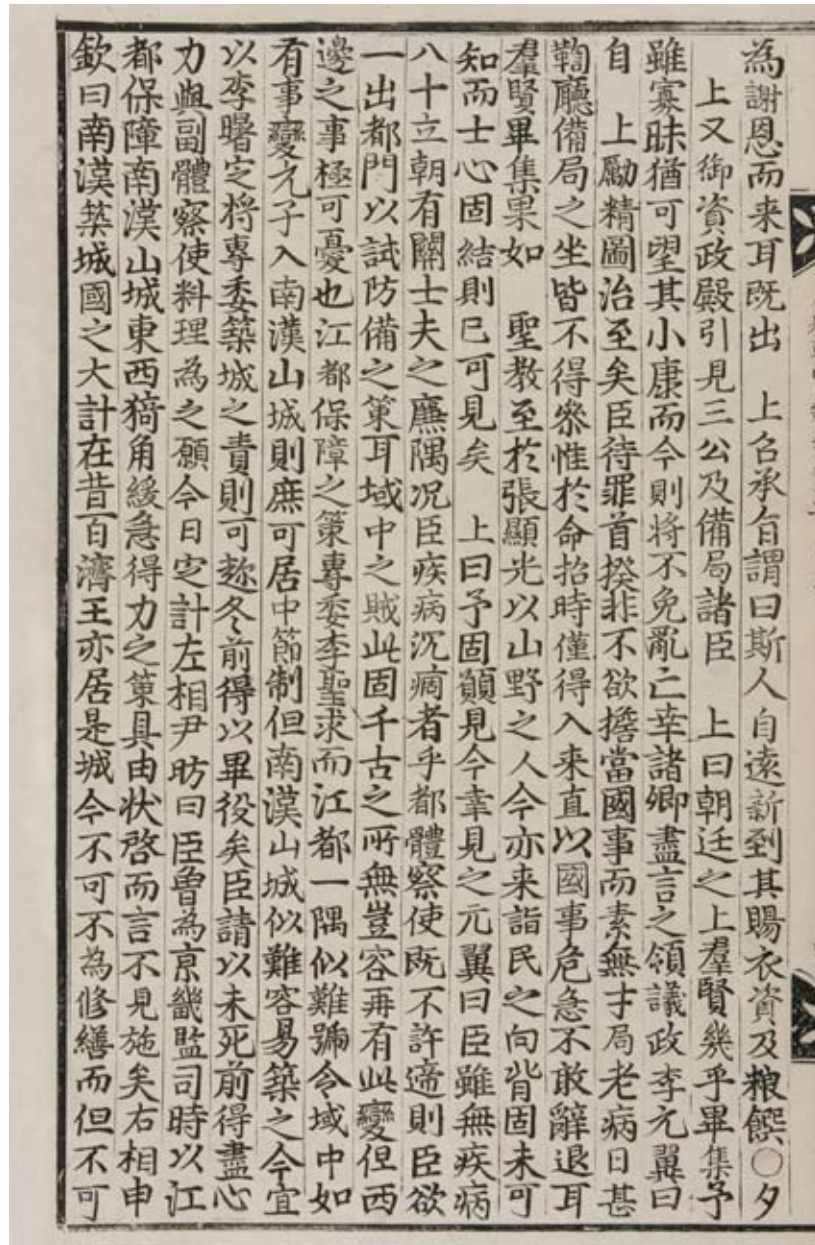 為謝恩而来耳既出　上召承旨謂曰斯人自遠新到其賜衣資及粮饌○夕
上又御資政殿引見三公及備局諸臣　上曰朝廷之上羣賢幾乎畢集予
雖寡昧猶可望其小康而今則將不免亂亡幸諸卿盡言之領議政李元翼曰
自　上勵精圖治至矣臣待罪首揆非不欲擔當國事而素無才局老病日甚
鞫廳備局之坐皆不得叅惟於命招時僅得入来直以國事危急不敢辭退耳
羣賢畢集果如　聖教至於張顯光以山野之人今亦来詣民之向背固未可
知而士心固結則已可見矣　上曰予固願見今幸見之元翼曰臣雖無疾病
八十立朝有關士夫之廉隅况臣疾病沉痼者乎都體察使既不許遆則臣欲
一出都門以試防備之策耳域中之賊此固千古之所無豈容再有此變但西
邊之事極可憂也江都保障之策專委李聖求而江都一隅似難號令域中如
有事變元子入南漢山城則庶可居中節制但南漢山城似難容易築之今宜
以李曙定将專委築城之責則可趂冬前得以畢役矣臣請以未死前得盡心
力與副體察使料理為之願今日定計左相尹昉曰臣曾為京畿監司時以江
都保障南漢山城東西犄角緩急得力之策具由状啓而言不見施矣右相申
欽曰南漢築城國之大計在昔百濟王亦居是城今不可不為修繕而但不可